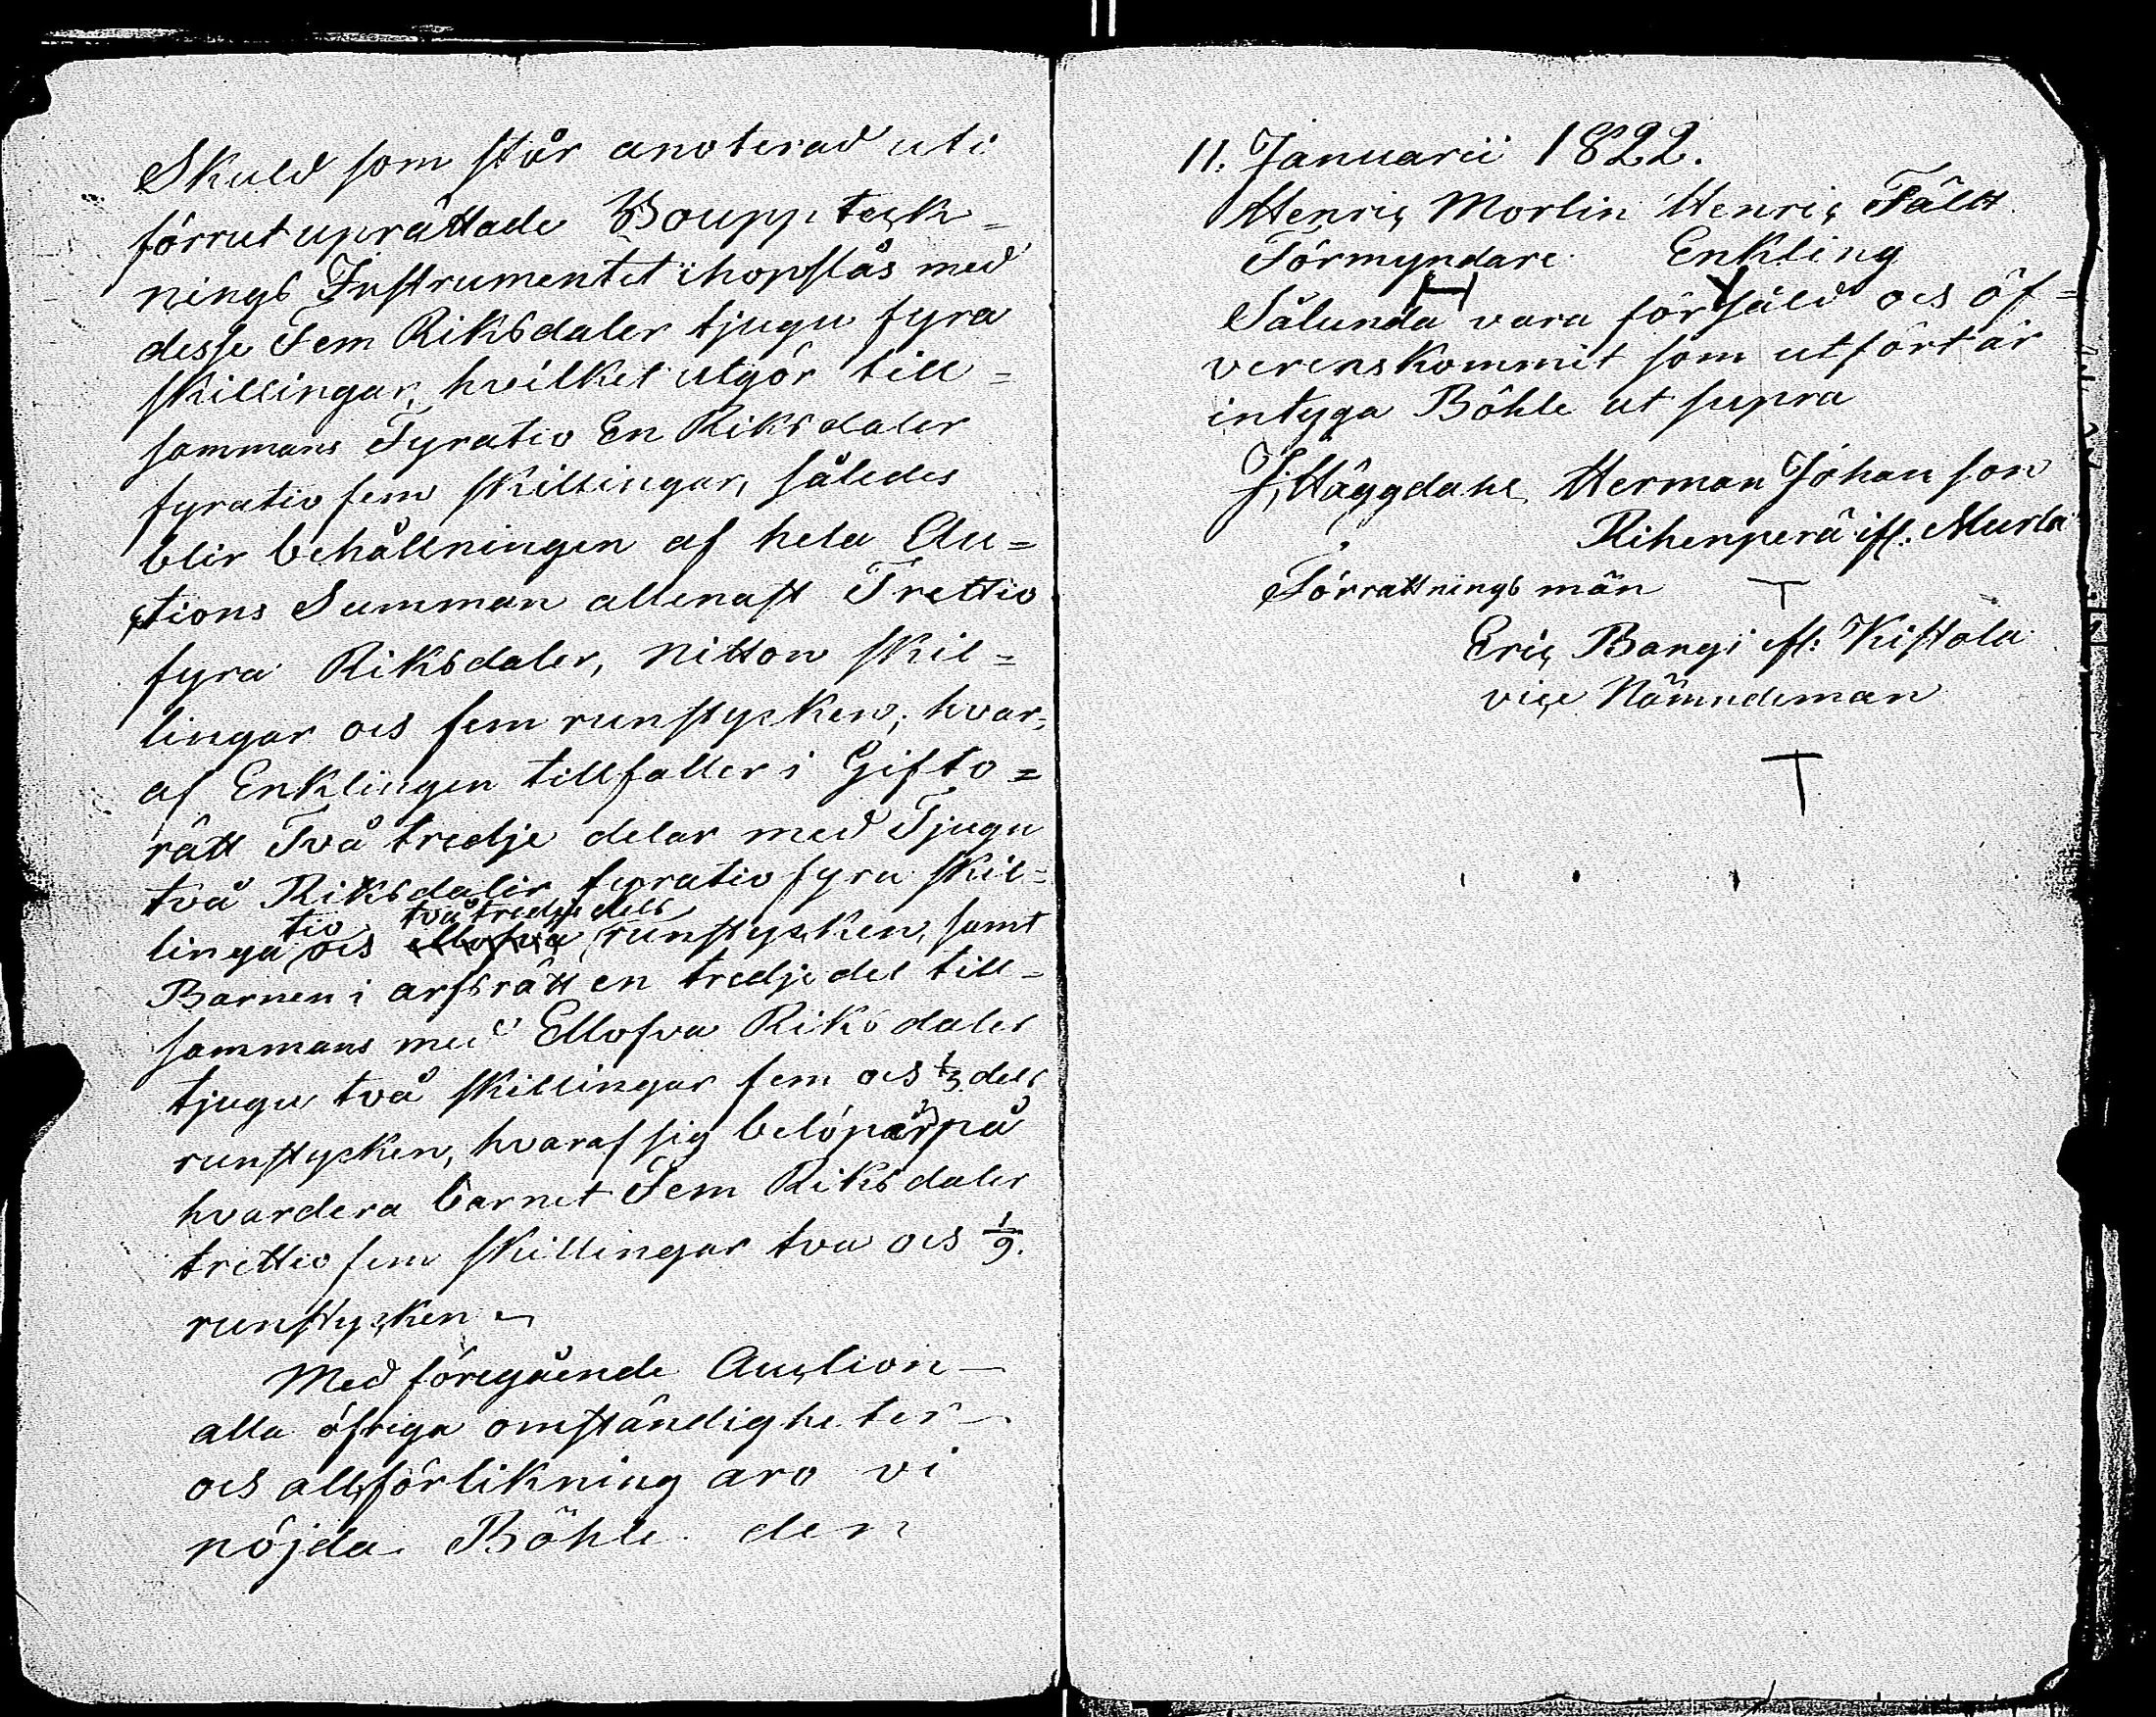 Skuld som står anoterad uti
förrut uprättade Bouppteck=
nings Instrumentet ihopslås med
desse Fem Riksdaler tjugu fyra
skillingar, hvilket utgör till=
sammans Fyratio En Riksdaler
fyratio fem skillingar, således
blir behållningen af hela Au=
ctions Summan allenast Trettio
fyra Riksdaler, nitton skil=
lingar och fem runstycken, hvar=
af Enklingen tillfaller i Gifto=
rätt Två tredje delar med Tjugu
två Riksdaler fyratio fyra skil=
tio två tredje dels
linga och ellofva runstycken, samt
Barnen i arfsrätt en tredje del till=
sammans med Ellofva Riksdaler
tjugu två skillingar fem och 1/3 dels
runstycken, hvaraf sig belöpar på
hvardera barnet Fem Riksdaler
trettio fem skillingar två och 1/9.
runstycken
Med föregående Auction
alla öfriga omständigheter
och all förlikning äro vi
nöjda Böhle den
11. Januarii 1822.
Henric Morlin Henric Fält
Förmyndare Enkling
Sålunda vara försåld och öf=
verenskommit som utfört är
intyga Böhle ut supra
J, Häggdahl, Herman Johansson
Rihenperä ifl: Murla
Förrattnings män
Eric Bangi ifl: Kistola
vice Nämndeman